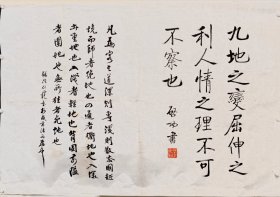 九地之變屈伸之
利人情之理不可
不察也 啟功書
凡為客之道深則專淺則散去國越
境而師者絕地也四通者衢地也入深
者重地也入淺者輕地也背固前隘
者圍地也無所往者死地也